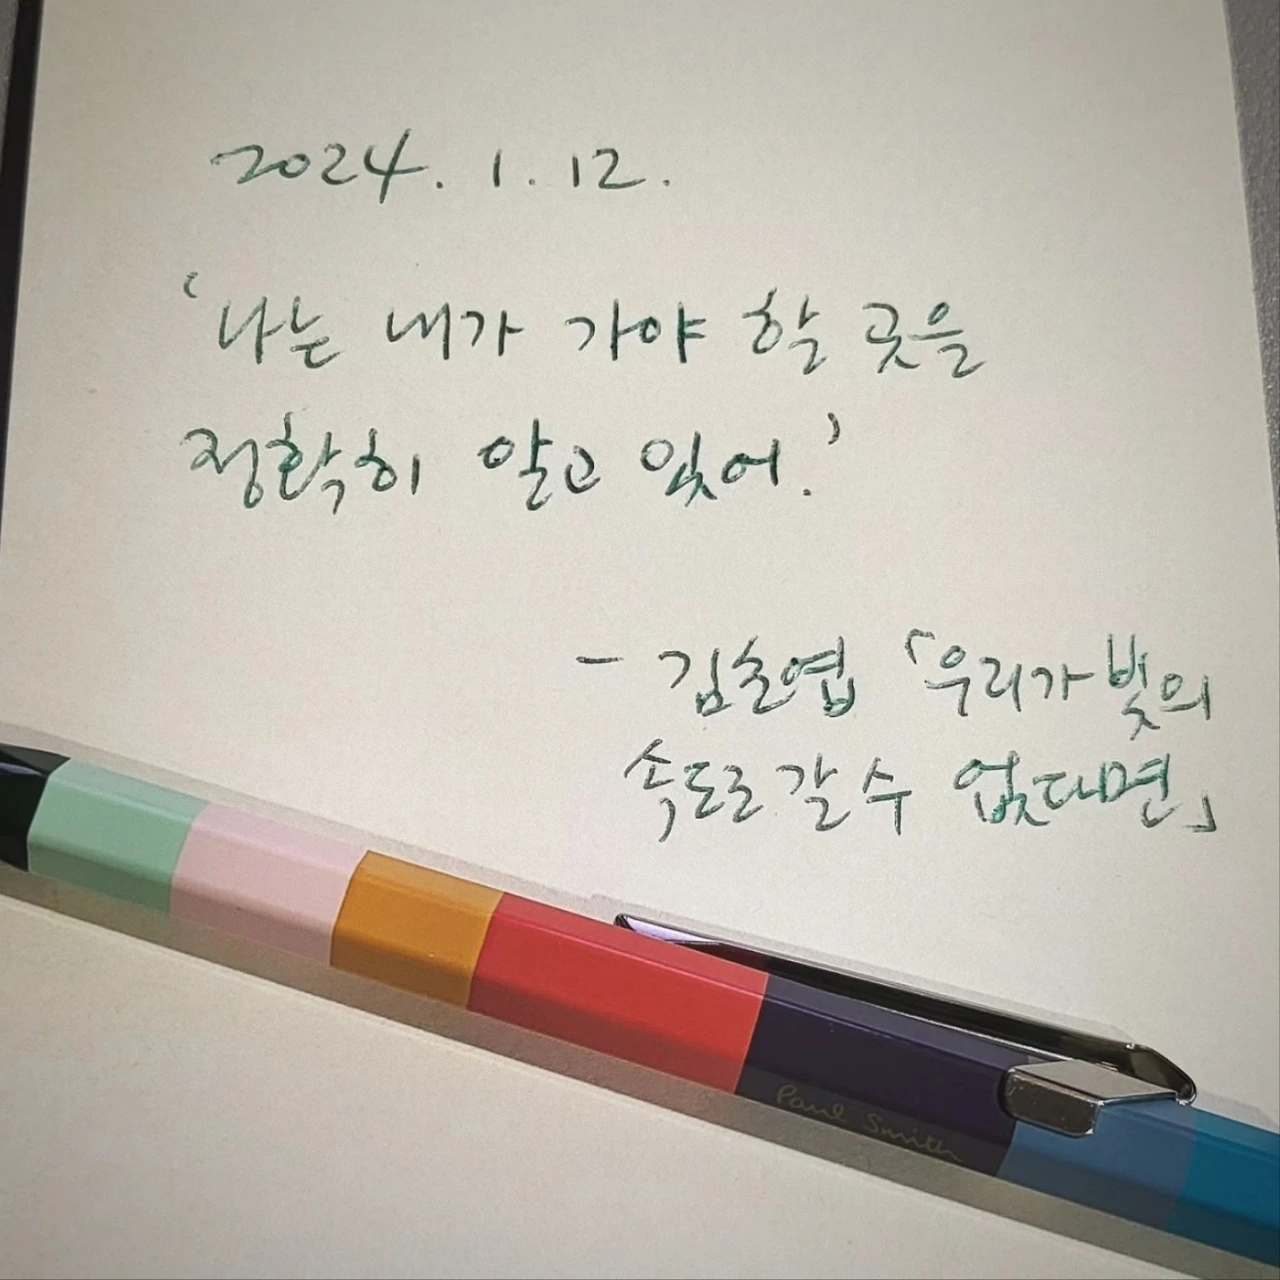 2024. 1. 12.
‘나는 내가 가야 할 곳을
정확히 알고 있어.’
- 김초엽 「우리가 빛의
속도로 갈 수 없다면」
Paul Smith